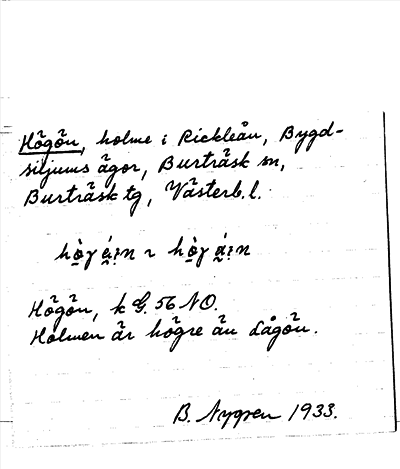 Högön, holme i Rickleån, Bygd-
siljums ägor, Burträsk sn,
Burträsk tg, Västerb. l.
Högön, k G. 56 NO.
Holmen är högre än Lågön.
B. Nygren 1933.